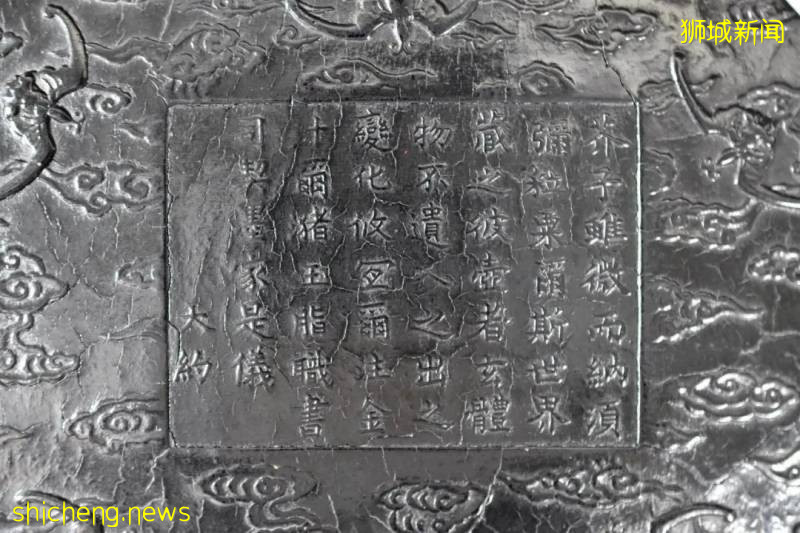 狮城新闻
芥子雖微而納須
彌粒粟爾斯世界
藏之彼壺者玄體
物不遺入之出之
變化攸爾注金
爾豬玉脂職書
司契墨家是儀
大約
shicheng.news